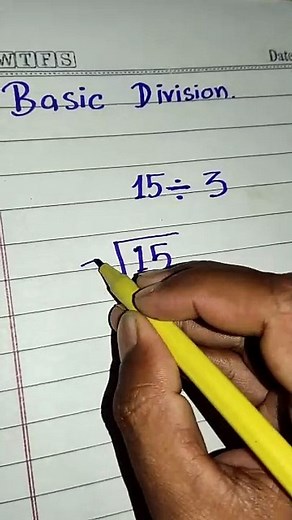 W T F S
Date
Basic Division.
15 ÷ 3
15